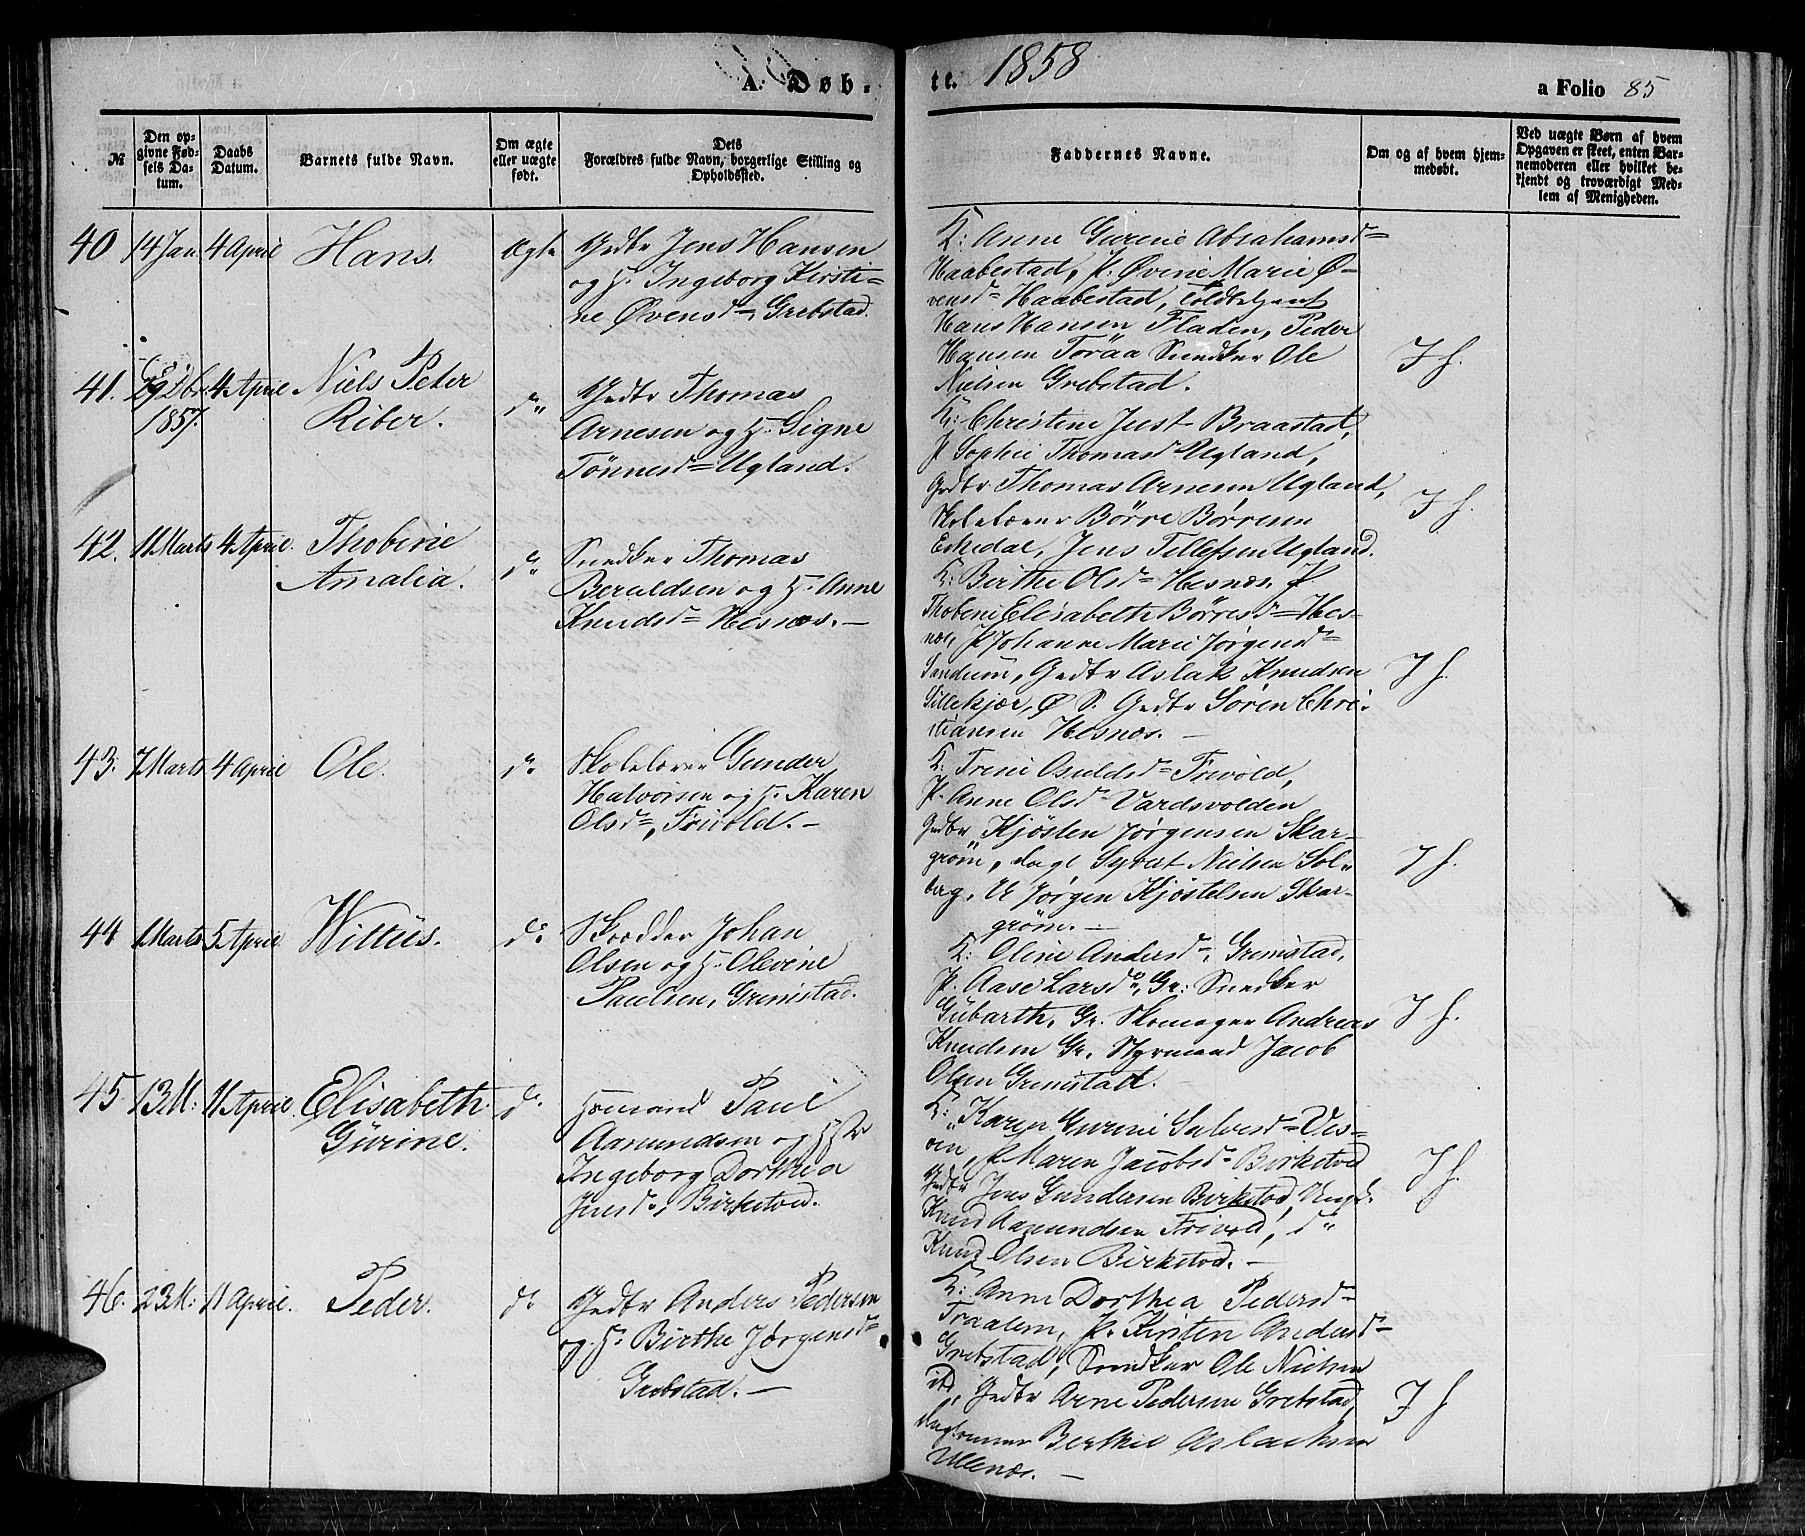 A. Døb-
te. 1858
a Folio 85
№
Den op-
givne Fød-
sels Da-
tum.
Daabs
Datum.
Barnets fulde Navn.
Om ægte
eller uægte
født.
Dets
Forældres fulde Navn, borgerlige Stilling og
Opholdssted.
Faddernes Navne.
Om og af hvem hjem-
medøbt.
Ved uægte Børn af hvem
Opgaven er skeet, enten Bar-
nemoderen eller hvilket be-
kjendt og troværdigt Med-
lem af Menigheden.
40 14 Jan. 4 April Hans. Ægte
Gdbr Jens Hansen
og H. Ingeborg Kirsti-
ne Øvensd=, Grebstad.
K: Anne Gurene Abrahamsd=
Haabestad, P. Øvine Marie Ø-
vensd= Haabestad,
Hans Hansen Fladen, Peder
Hansen Toråa Snedker Ole
Nielsen Grebstad.
J f.
41. 29 Dbr 4 April Niels Peter
1857. Riber. do
Gdbr Thomas
Arnesen og H. Signe
Tönnesd= Ugland.
K: Christine Just Braastad,
P Sophie Thomasd Ugland,
Gdbr Thomas Arnesen Ugland,
Skolelærer Börre Börresen
Eskedal, Jens Tellefsen Ugland.
J f.
42. 11 Marts 4 April. Thobine
Amalia. do
Snedker Thomas
Beruldsen og H. Anne
Knudsd= Hesnæs. —
K: Birthe Olsd= Hesnæs, P
Thobine Elisabeth Børresd= Hes-
næs, P Johanne Marie Jørgensd=
, Gdbr Aslak Knudsen
Sillekjær, Ø S. Gdbr Søren Chri-
stiansen Hesnæs. —
J f.
43. 7 Marts 4 April Ole. do
Skolelærer Gunder
Halvorsen og H. Karen
Olsd=, Frivold. —
K: Trine Osuldsd= Frivold,
P. Anne Olsd= Vardsvolden
Gdbr Kjösten Jørgensen Skar-
gröm, dagl Syvert Nielsen Sol-
berg, U Jørgen Kjöstelsen Skar-
gröm. —
J f.
44 1 Marts 5 April Willüs. do
Skrædder Johan
Olsen og H. Olevine
Paulsen, Grimstad.
K: Oline Andersd=, Grimstad,
P. Aase Larsd=, Gr: Snedker
Gübarth, Gr. Skomager Andreas
Knudsen Gr, Styrmand Jacob
Olsen Grimstad.
J f.
45 13 M: 11 April. Elisabeth
Gürine. do
Paul
Aamundsen og
Ingeborg Dorthea
Jensd=, Birketved.
K: Karen Gurine Salvesd= Ves-
øen, P Maren Jacobsd= Birketved
Gdbr Jens Gundersen Birketved, Ungk.
Knud Aamundsen Frivold, do
Knud Olsen Birketved. —
J f.
46. 23 M: 11 April. Peder. do
Gdbr Anders Pedersen
og H. Birthe Jørgensd=
Grebstad. —
K: Anne Dorthea Pedersd=
Traalem, P. Kirsten Andersd=
Grebstad, Snedker Ole Nielsen
ibd, Gdbr Arne Pedersen Grebstad,
Berthel Aslaksen
Ullenæs. —
J f